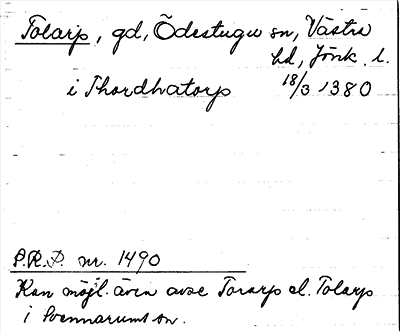 Tolarp, gd, Ödestugu sn, Västra
hd, Jönk. l.
i Thordhatorp 18/3 1380
P.R.P. nr. 1490
Kan möjl. även avse Torarp el. Tolarp
i Svennarums sn.